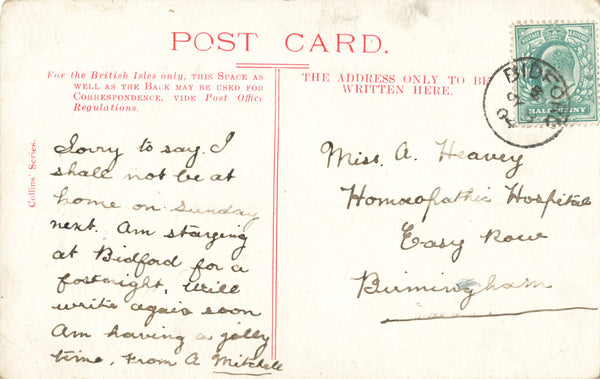 POST CARD.
For the British Isles only, THIS SPACE AS
WELL AS THE BACK MAY BE USED FOR
CORRESPONDENCE, VIDE Post Office
Regulations.
THE ADDRESS ONLY TO BE
WRITTEN HERE.
Collins' Series.
Sorry to say I
shall not be at
home on Sunday
next. Am staying
at Bidford for a
fortnight. Will
write again soon
Am having a jolly
time. From A Mitchell
Miss. A. Heavey
Homœopathic Hospital
Easy Row
Birmingham
POSTAGE REVENUE
HALFPENNY
BIDFORD